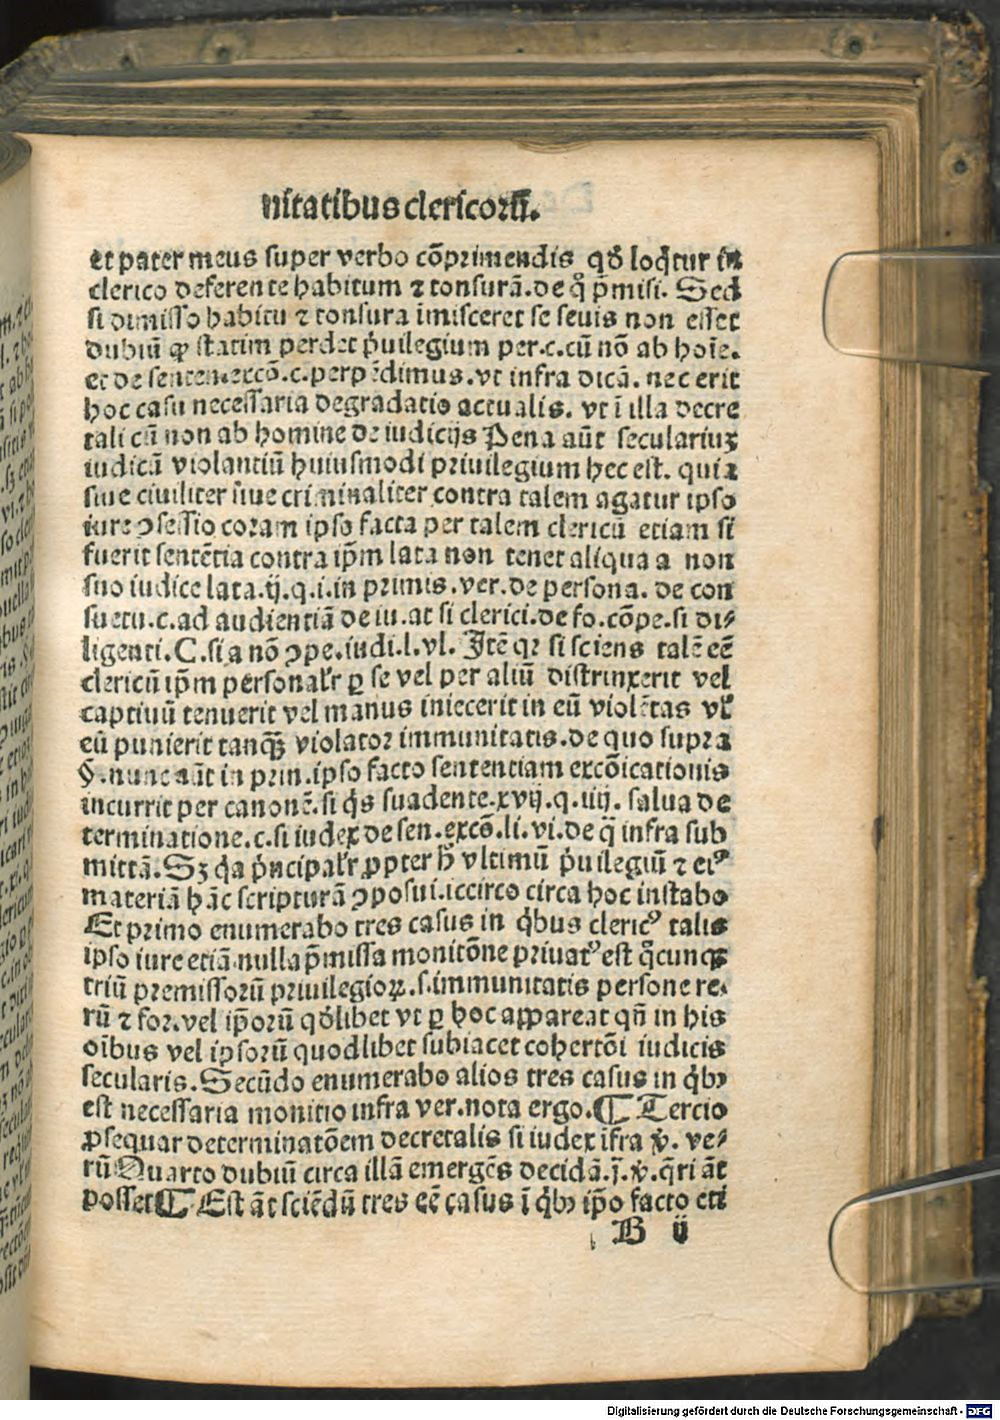 nitatibus clericorũ.
et pater meus super verbo cõprimendis qđ loq̃tur in
clerico deferente habitum ⁊ tonsurã.de q̃ p̃misi. Sed
si dimisso habitu ⁊ tonsura imisceret se seuis non esset
dubiũ ꝙ statim perdet p̓uilegium per.c.cũ nõ ab hoĩe.
et de senten.excõ.c.perpẽdimus.vt infra dicã. nec erit
hoc casu necessaria degradatio actualis. vt ĩ illa decre
tali cũ non ab homine de iudicijs Pena aũt seculariuʒ
iudicũ violantiũ huiusmodi priuilegium hec est. quia
siue ciuiliter siue criminaliter contra talem agatur ipso
iure ꝯfessio coram ipso facta per talem clericũ etiam si
fuerit sentẽtia contra ip̃m lata non tenet aliqua a non
suo iudice lata.ij.q.i.in primis.ver.de persona. de con
suetu.c.ad audientiã de iu.at si clerici.de fo.cõpe.si di⸗
ligenti.C.si a nõ ꝯpe.iudi.l.vl. Itẽ qꝛ si sciens talẽ eẽ
clericũ ip̃m personal'r ꝑ se vel per aliũ distrinxerit vel
captiuũ tenuerit vel manus iniecerit in eũ violẽtas vl'
eũ punierit tanqꝫ violator immunitatis.de quo supra
§.nunc aũt in prin.ipso facto sententiam excõicationis
incurrit per canonẽ.si q̓s suadente.xvij.q.iiij. salua de
terminatione.c.si iudex de sen.excõ.li.vi.de q̃ infra sub
mittã.Sʒ q̓a p̓ncipal'r ꝓpter h̃ vltimũ p̓uilegiũ ⁊ eiꝰ
materiã hãc scripturã ꝯposui.iccirco circa hoc instabo
Et primo enumerabo tres casus in q̓bus clericꝰ talis
ipso iure etiã nulla p̃missa monitõne priuatꝰ est q̃cunqꝫ
triũ premissorũ priuilegioꝝ.s.immunitatis persone re⸗
rũ ⁊ for.vel ip̃orũ qđlibet vt ꝑ hoc appareat qñ in his
oĩbus vel ipsorũ quodlibet subiacet cohertõi iudicis
secularis.Secũdo enumerabo alios tres casus in q̓bꝫ
est necessaria monitio infra ver.nota ergo.¶ Tercio
ꝓsequar determinatõem decretalis si iudex ĩfra ꝟ. ve⸗
rũ Quarto dubiũ circa illã emergẽs decidã.j.ꝟ.q̃ri ãt
posset ¶ Est ãt sciẽdũ tres eẽ casus ĩ q̓bꝫ ip̃o facto eti
B ij
Digitalisierung gefördert durch die Deutsche Forschungsgemeinschaft - DFG